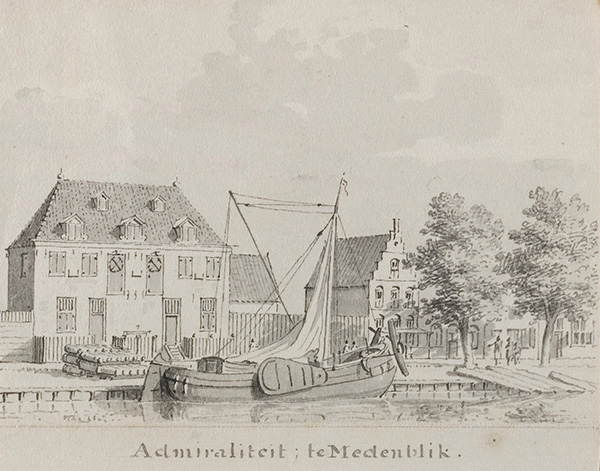 Admiraliteit; te Medenblik.